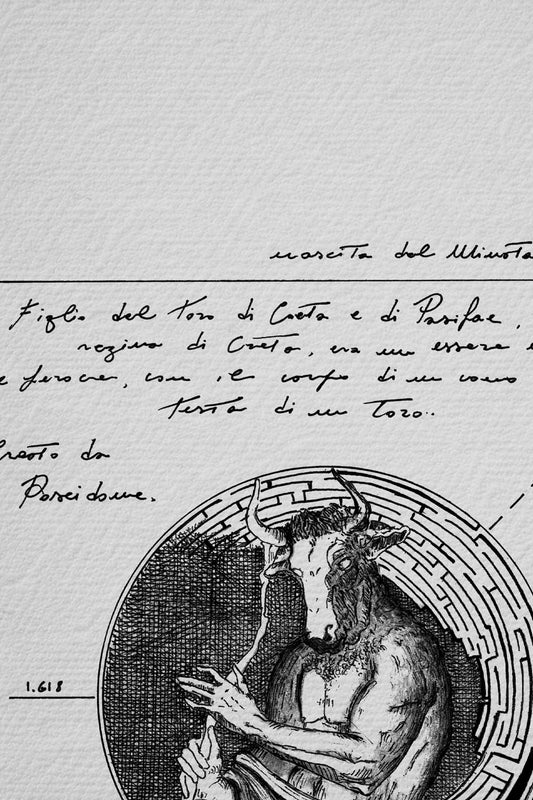 nascita dal Minota
Figlio del toro di Creta e di Pasifae,
regina di Creta, era un essere
e feroce, con il corpo di un uomo
testa di un toro..
Creato da
Poseidone.
1.618